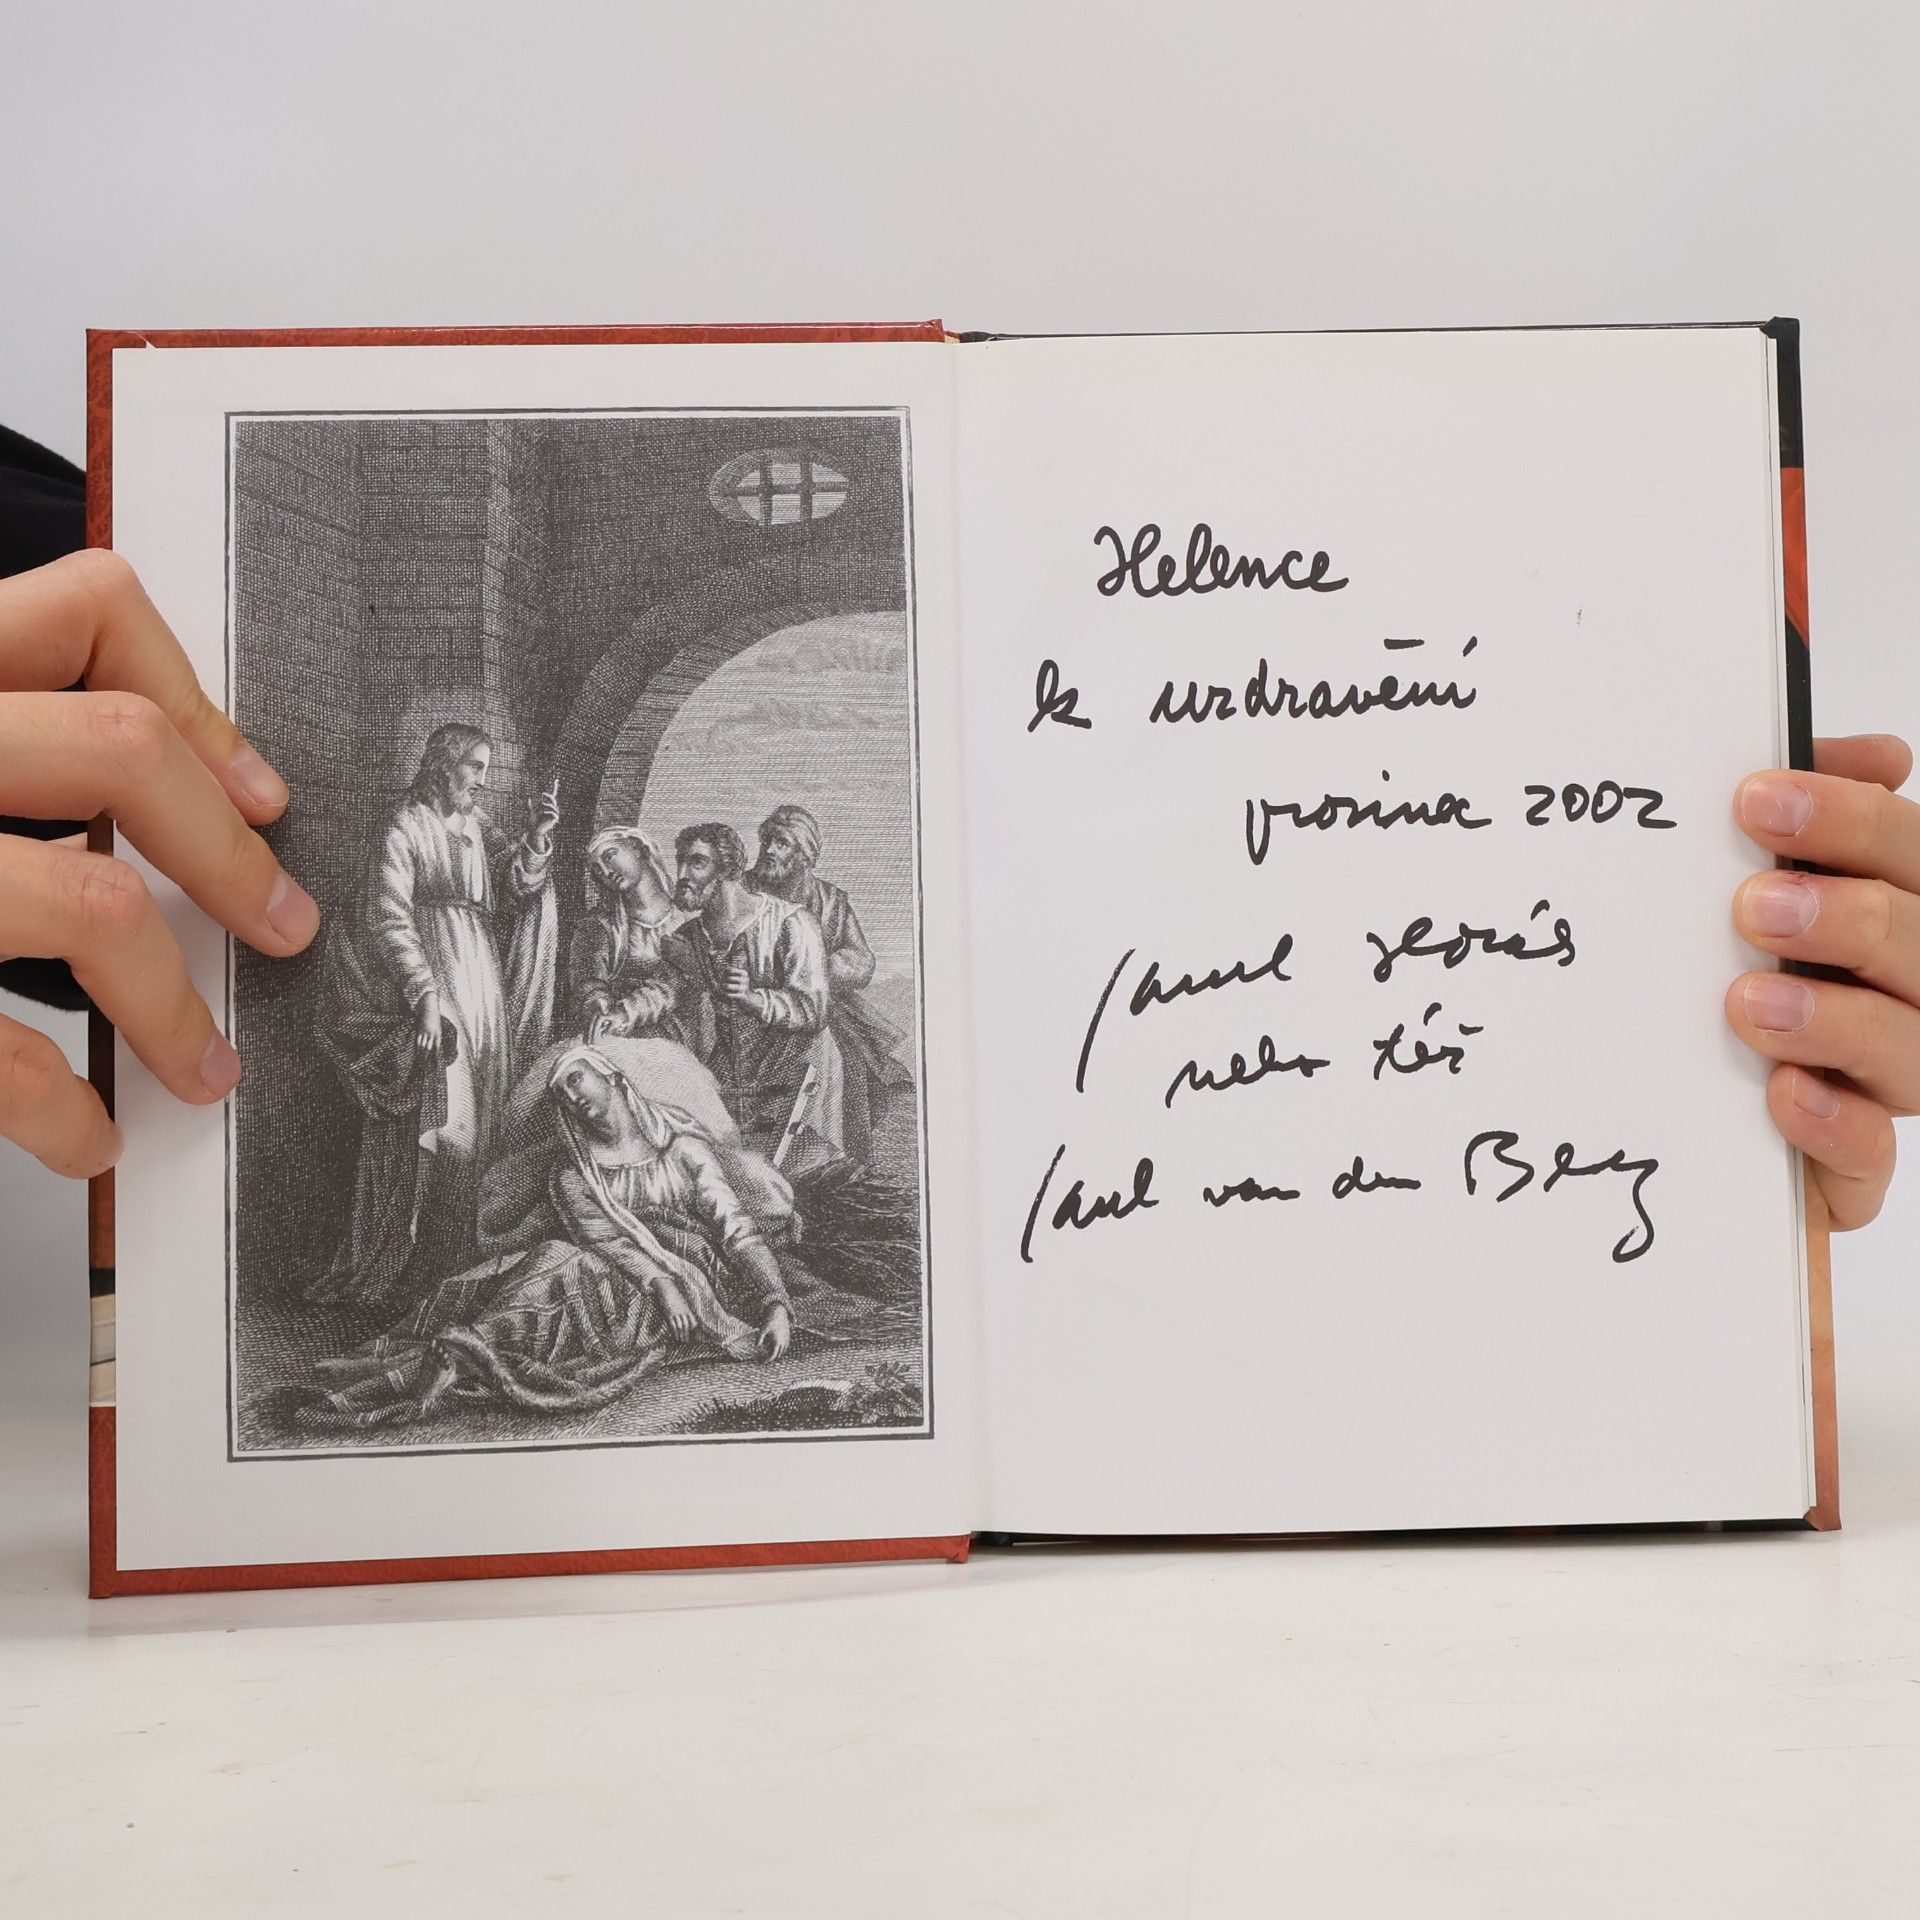 Helence
k uzdravění
prosinec 2002
Pavel
nebo též
Paul van den Berg